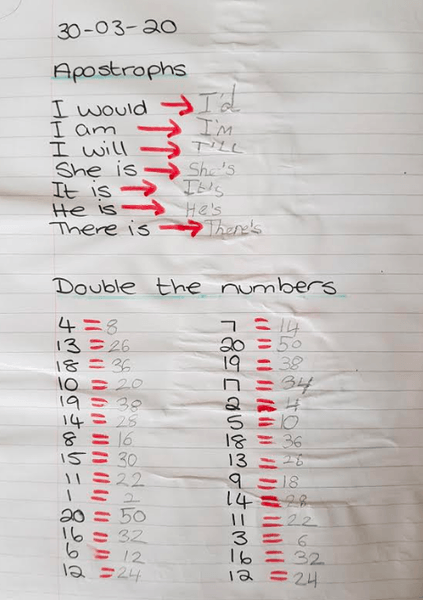 30-03-20
Apostrophs
I would → I'd
I am → I'm
I will → I'll
She is → She's
It is → It's
He is → He's
There is → There's
Double the numbers
4 = 8
13 = 26
18 = 36
10 = 20
19 = 38
14 = 28
8 = 16
15 = 30
11 = 22
1 = 2
20 = 50
16 = 32
6 = 12
12 = 24
7 = 14
20 = 50
19 = 38
17 = 34
2 = 4
5 = 10
18 = 36
13 = 26
9 = 18
14 = 28
11 = 22
3 = 6
16 = 32
12 = 24